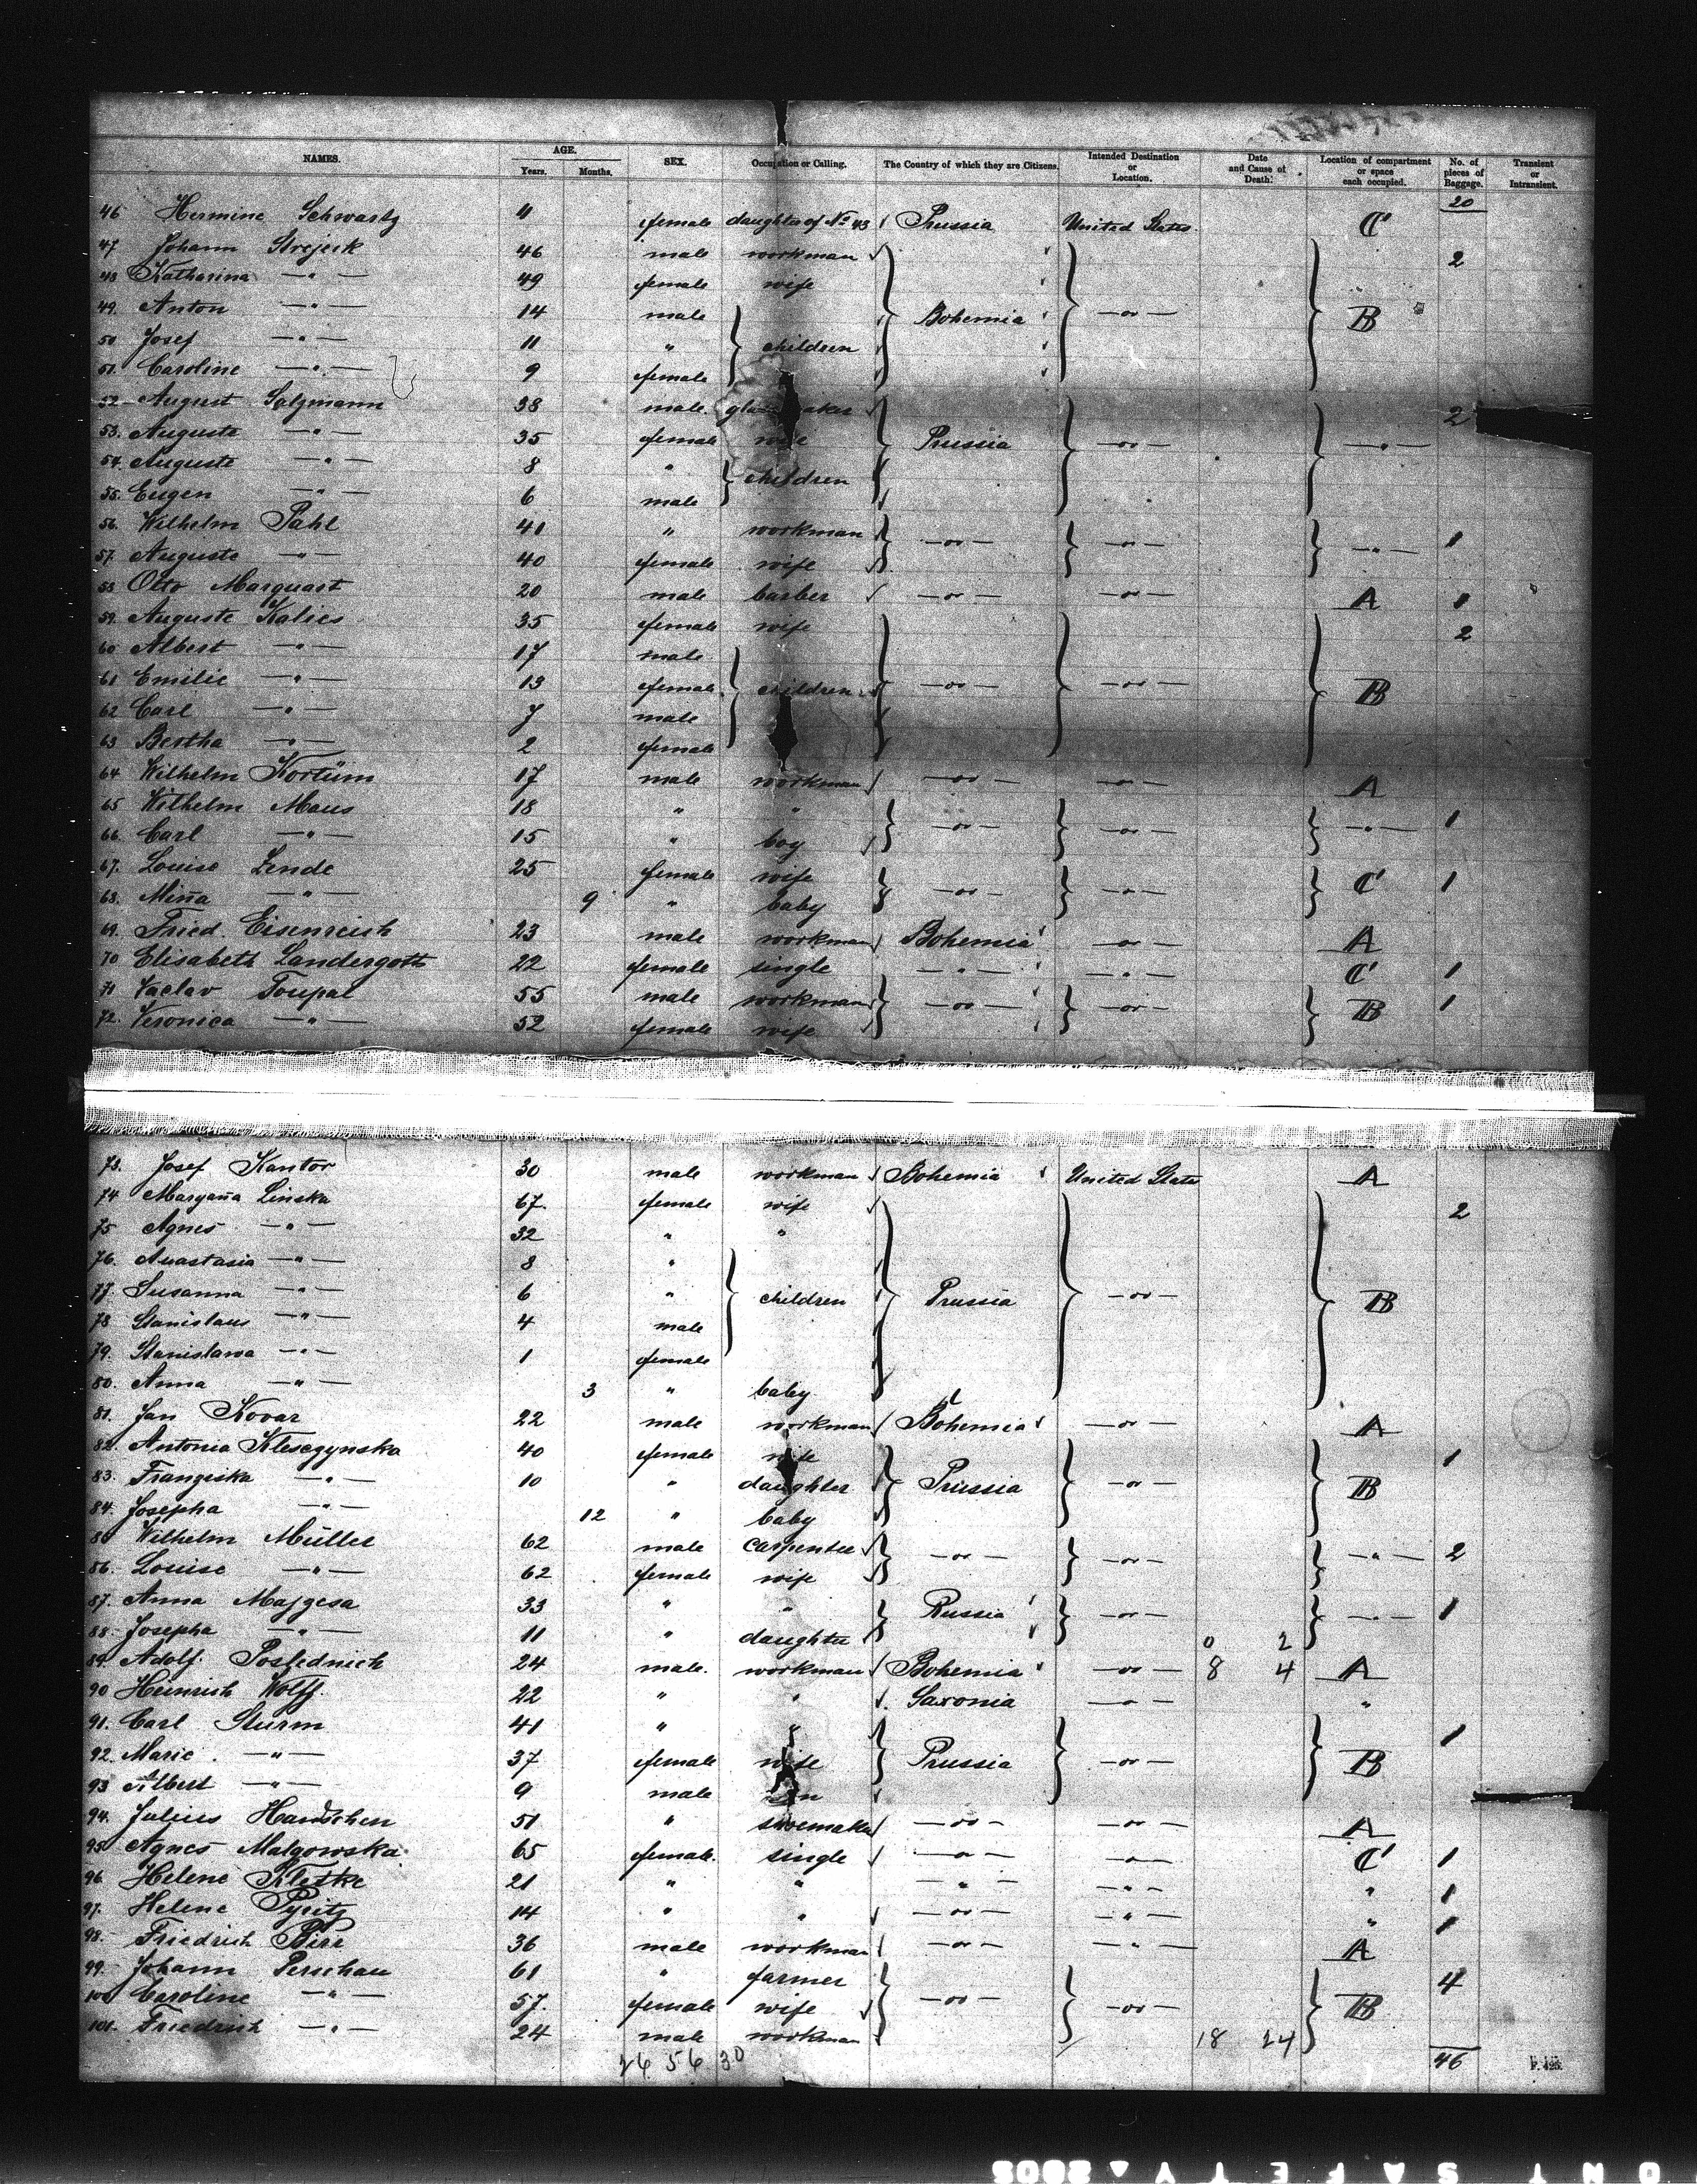 NAMES. AGE. Years. Months. SEX. Occupation or Calling. The Country of which they are Citizens. Intended Destination or Location. Date and Cause of Death. Location of compartment or space each occupied. No. of pieces of Baggage. Transient or Intransient.
20
46 Hermine Schwartz 11 female daughter of No 43 Prussia United States. C
47. Johann Strejcek 46 male workman 2
48 Katharina —"— 49 female wife
49. Anton —"— 14 male Bohemia —"— B
50 Josef —"— 11 " children
51. Caroline —"— 9 female
52. August Salzmann 38 male. 2
53. Auguste —"— 35 female wife Prussia —"— —"—
54. Auguste —"— 8 " children
55. Eugen —"— 6 male
56. Wilhelm Pahl 41 " workman —"— —"— —"— 1
57. Auguste —"— 40 female wife
58 Otto Marquart 20 male barber —"— —"— A 1
59. Auguste Kalies 35 female wife 2
60 Albert —"— 17 male
61 Emilie —"— 13 female children —"— —"— B
62 Carl —"— 7 male
63 Bertha —"— 2 female
64 Wilhelm Kortüm 17 male workman —"— —"— A
65 Wilhelm Maus 18 " " —"— —"— —"— 1
66. Carl —"— 15 " boy
67. Louise Zende 25 female wife —"— —"— C 1
68. Mina —"— 9 " baby
69. Fried. Eisenreich 23 male workman Bohemia —"— A
70 Elisabeth Landergott 22 female single —"— —"— C 1
71 Vaclav Toupal 55 male workman —"— —"— B 1
72. Veronica —"— 52 female wife
73. Josef Kantor 30 male workman Bohemia United States A
74 Maryana Linska 67. female wife 2
75 Agnes —"— 32 " "
76. Anastasia —"— 8 "
77. Susanna —"— 6 " children Prussia —"— B
78 Stanislaus —"— 4 male
79. Stanislawa —"— 1 female
80. Anna —"— 3 " baby
81. Jan Kovar 22 male workman Bohemia —"— A
82. Antonia Klesczynska 40 female wife 1
83. Franziska —"— 10 " daughter Prussia —"— B
84. Josepha —"— 12 " baby
85 Wilhelm Müller 62 male carpenter —"— —"— —"— 2
86. Louise —"— 62 female wife
87. Anna Majzesa 33 " " Russia —"— —"— 1
88. Josepha —"— 11 " daughter 0 2
89. Adolf Posjednich 24 male. workman Bohemia —"— 8 4 A
90 Heinrich Wolff. 22 " " Saxonia —"— "
91. Carl Sturm 41 " " 1
92. Marie. —"— 37 female wife Prussia —"— B
93 Albert —"— 9 male
94. Julius Handschen 51 " shoemaker —"— —"— A
95 Agnes Malgowska 65 female. single —"— —"— C 1
96. Helene Kleske 21 " " —"— —"— " 1
97. Helene Pyritz 14 " " —"— —"— " 1
98. Friedrich Birr 36 male workman —"— —"— A
99. Johann Perschau 61 " farmer 4
100 Caroline —"— 57. female wife —"— —"— B
101. Friedrich —"— 24 male workman 18 24
26 56 30 46